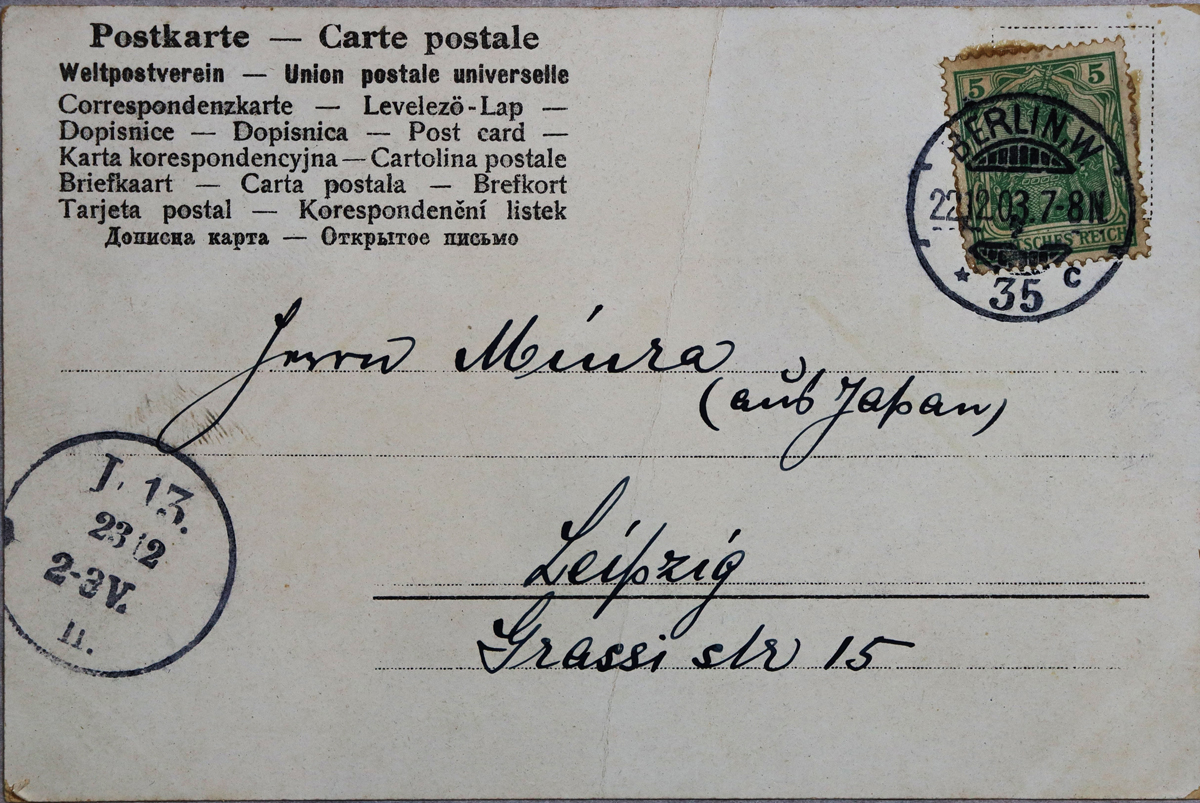 Postkarte — Carte postale
Weltpostverein — Union postale universelle
Correspondenzkarte — Levelező-Lap —
Dopisnice — Dopisnica — Post card —
Karta korespondencyjna — Cartolina postale
Briefkaart — Carta postala — Brefkort
Tarjeta postal — Korespondenční listek
Дописна карта — Открытое письмо
5 5
BERLIN, W
22.12.03. 7-8 N
DEUTSCHES REICH
* 35 c
Herrn Miura
(aus Japan)
J. 13.
23 12
2-3 V.
11.
Leipzig
Grassi str 15